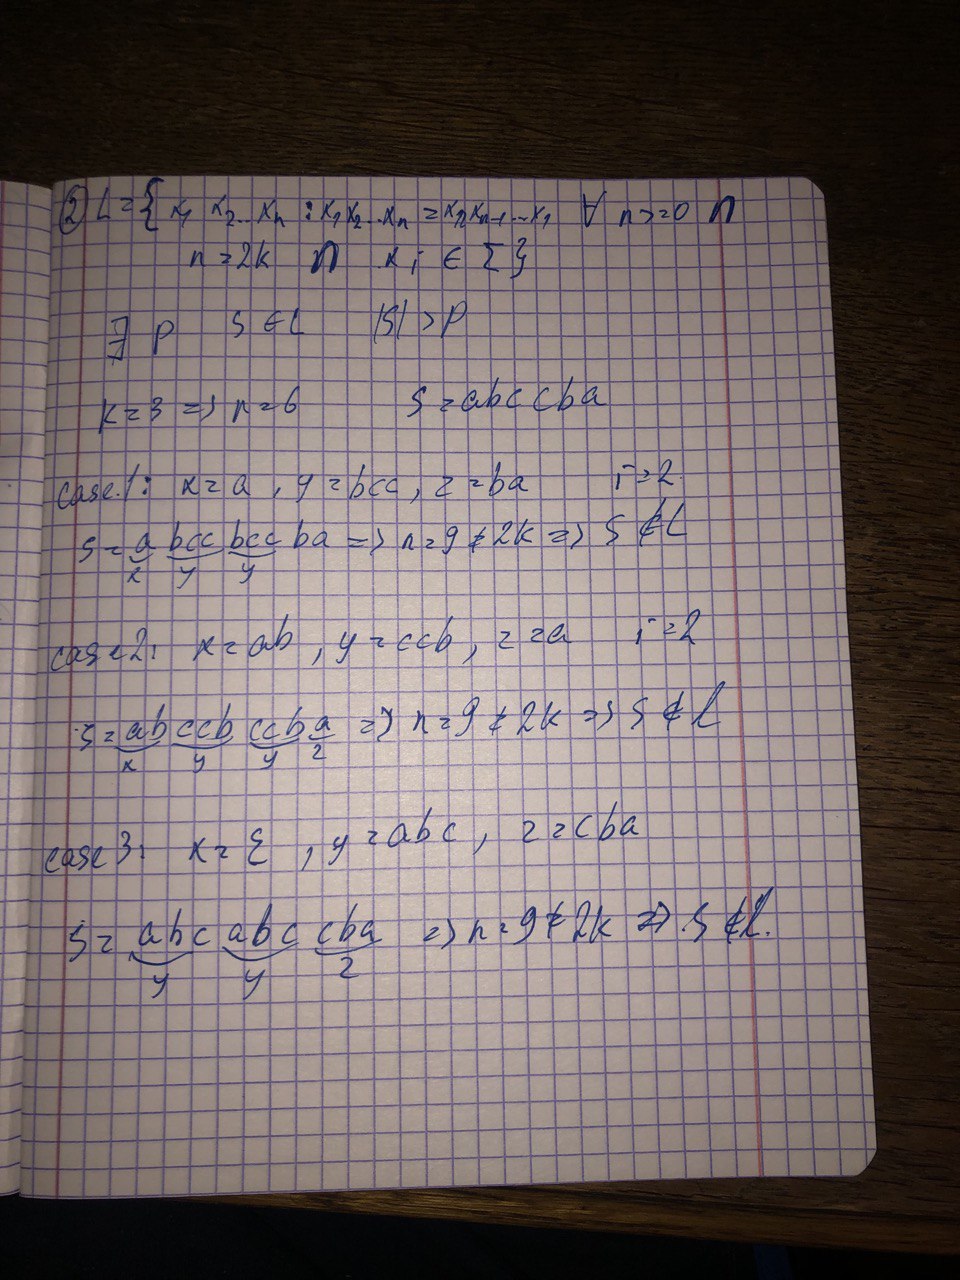 ② L = { x₁ x₂...xₙ : x₁x₂...xₙ = xₙxₙ₋₁...x₁ ∀ n>=0 ∩
n = 2k ∩ xᵢ ∈ Σ}
∃ p s ∈ L |s| > p
k=3 => n=6 s = abccba
case 1: x=a, y=bcc, z=ba i=2
s = a bcc bcc ba => n=9 ≠ 2k => s ∉ L
x y y
case 2: x=ab, y=ccb, z=a i=2
s = ab ccb ccb a => n=9 ≠ 2k => s ∉ L
x y y z
case 3: x=Ɛ, y=abc, z=cba
s = abc abc cba => n=9 ≠ 2k => s ∉ L.
y y z